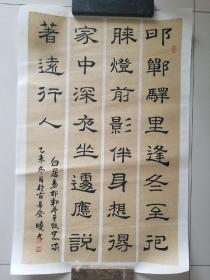 邯鄲驛里逢冬至抱
膝燈前影伴身想得
家中深夜坐還應說
著遠行人
白居易邯鄲冬至夜思家
乙未冬月於古